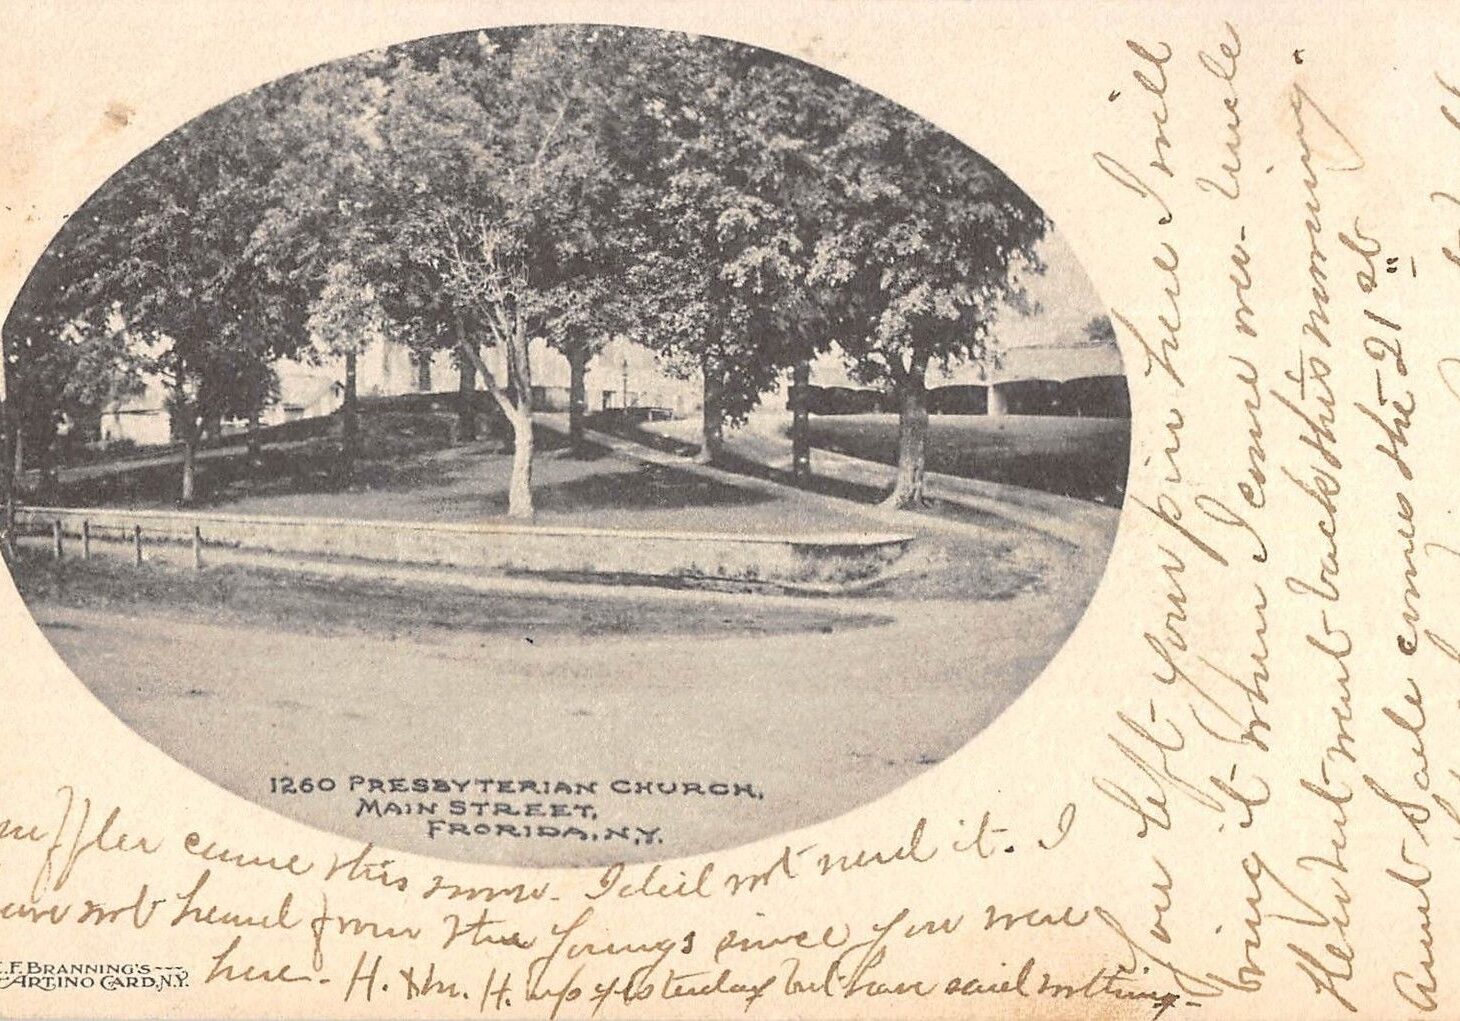 1260 PRESBYTERIAN CHURCH,
MAIN STREET,
FRORIDA, N.Y.
muffler came this morn. I did not need it. I
have not heard from the Youngs since you were
here. H. & Mr. H. up yesterday but have said nothing
E.F. BRANNING'S
ARTINO CARD, N.Y.
You left your pin here I will
bring it when I come over. Uncle
Herbert went back this morning.
Aunt Sade comes the 21st